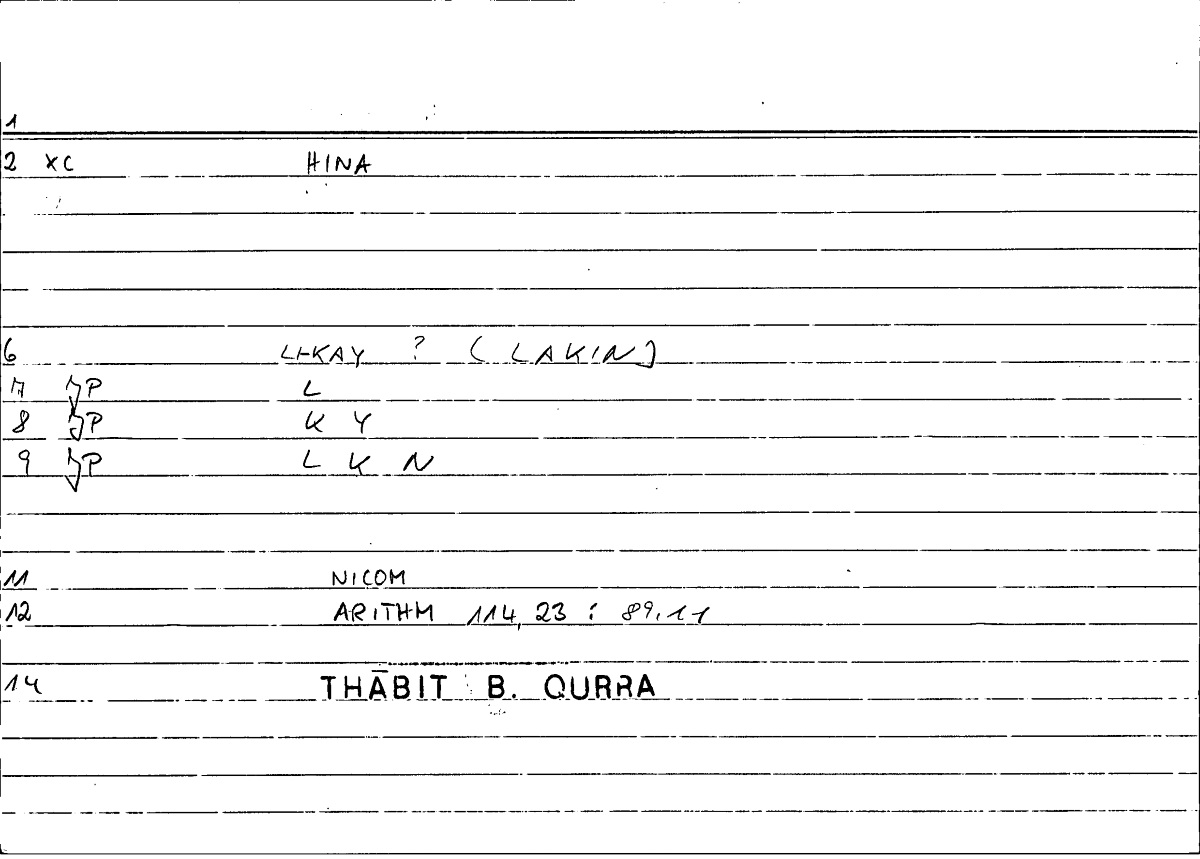 1
2 XC HINA
6 LI-KAY ? (LAKIN)
7 P L
8 P K Y
9 P L K N
11 NICOM
12 ARITHM 114,23 : 89,11
14 THĀBIT B. QURRA